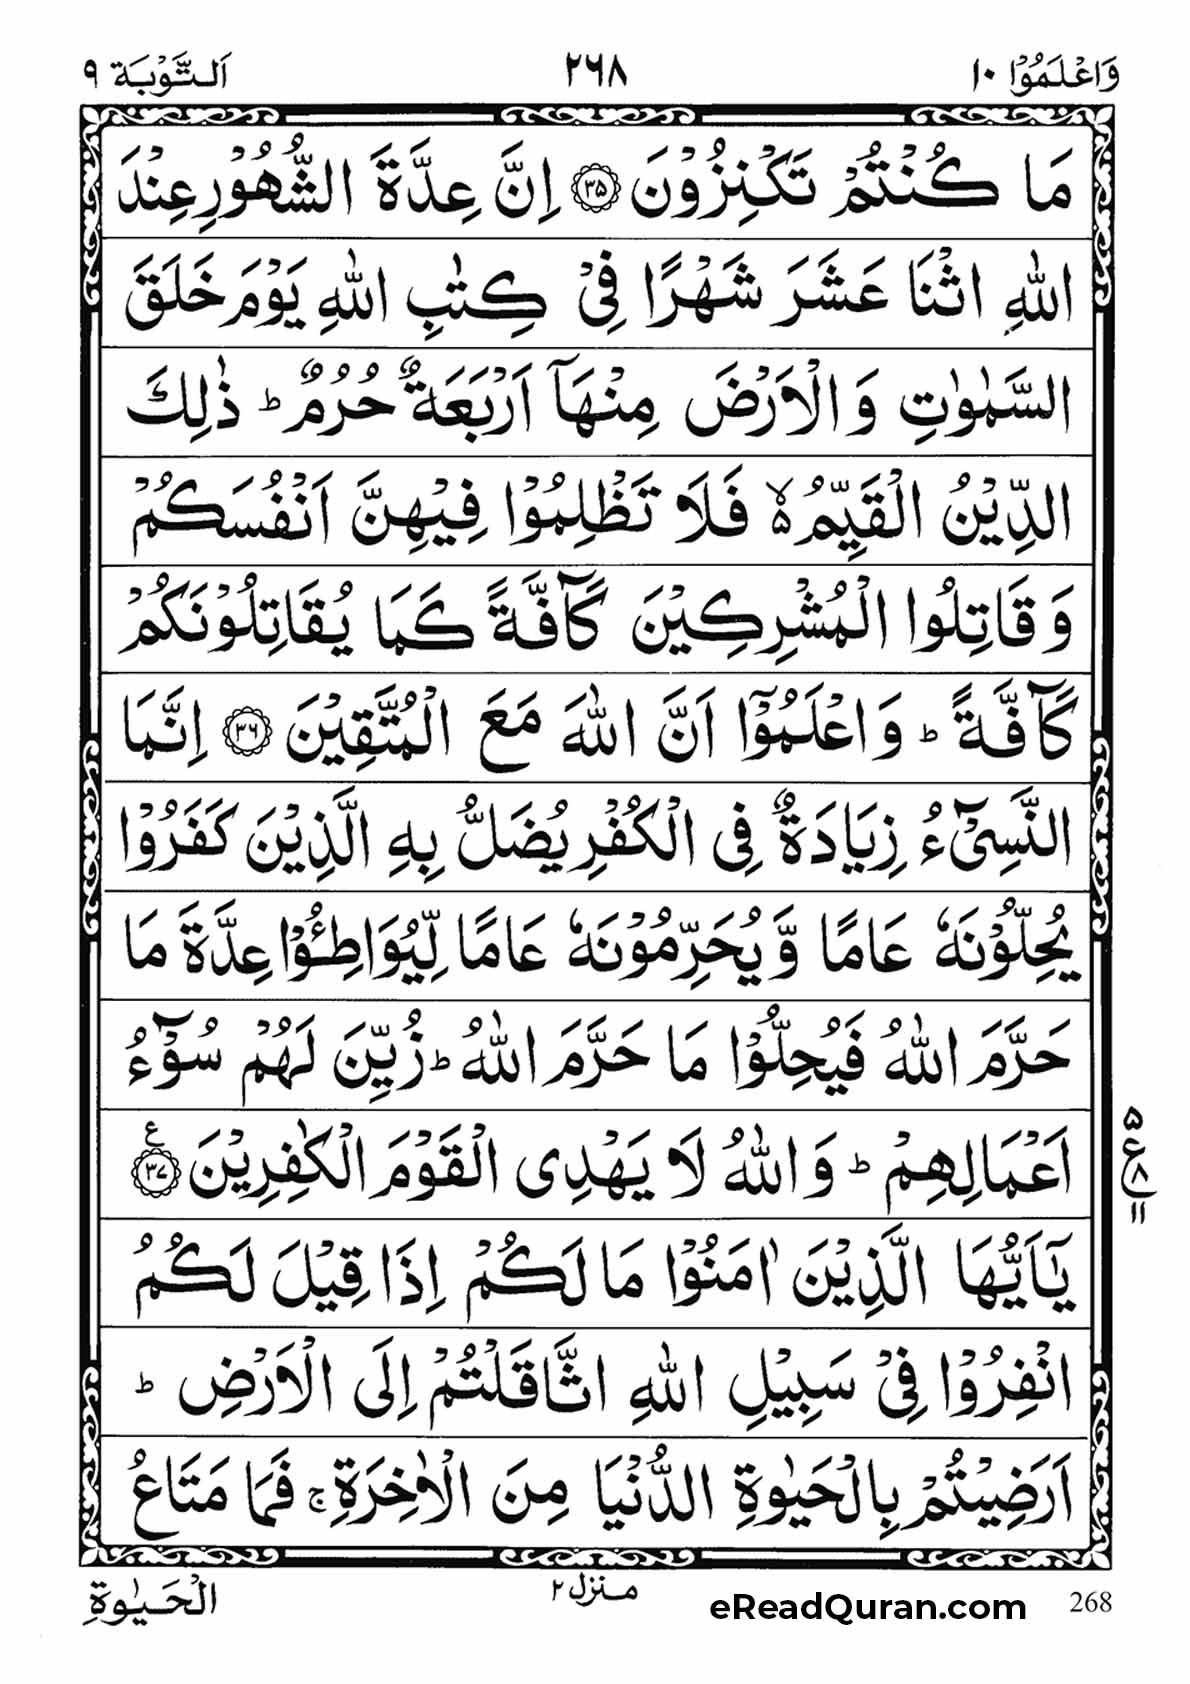 وَاعْلَمُوْۤا ١٠ ٢٦٨ اَلتَّوْبَة ٩
مَا كُنْتُمْ تَكْنِزُوْنَ ﴿٣٥﴾ اِنَّ عِدَّةَ الشُّهُوْرِ عِنْدَ
اللّٰهِ اثْنَا عَشَرَ شَهْرًا فِيْ كِتٰبِ اللّٰهِ يَوْمَ خَلَقَ
السَّمٰوٰتِ وَالْاَرْضَ مِنْهَاۤ اَرْبَعَةٌ حُرُمٌ ؕ ذٰلِكَ
الدِّيْنُ الْقَيِّمُ ۙ۬ فَلَا تَظْلِمُوْا فِيْهِنَّ اَنْفُسَكُمْ
وَقَاتِلُوا الْمُشْرِكِيْنَ كَآفَّةً كَمَا يُقَاتِلُوْنَكُمْ
كَآفَّةً ؕ وَاعْلَمُوْۤا اَنَّ اللّٰهَ مَعَ الْمُتَّقِيْنَ ﴿٣٦﴾ اِنَّمَا
النَّسِيْٓءُ زِيَادَةٌ فِي الْكُفْرِ يُضَلُّ بِهِ الَّذِيْنَ كَفَرُوْا
يُحِلُّوْنَهٗ عَامًا وَّيُحَرِّمُوْنَهٗ عَامًا لِّيُوَاطِـُٔوْا عِدَّةَ مَا
حَرَّمَ اللّٰهُ فَيُحِلُّوْا مَا حَرَّمَ اللّٰهُ ؕ زُيِّنَ لَهُمْ سُوْٓءُ
اَعْمَالِهِمْ ؕ وَاللّٰهُ لَا يَهْدِي الْقَوْمَ الْكٰفِرِيْنَ ﴿٣٧﴾ ع
٥ ع ٨ ١١
يٰۤاَيُّهَا الَّذِيْنَ اٰمَنُوْا مَا لَكُمْ اِذَا قِيْلَ لَكُمُ
انْفِرُوْا فِيْ سَبِيْلِ اللّٰهِ اثَّاقَلْتُمْ اِلَى الْاَرْضِ ؕ
اَرَضِيْتُمْ بِالْحَيٰوةِ الدُّنْيَا مِنَ الْاٰخِرَةِ ۚ فَمَا مَتَاعُ
الْحَيٰوةِ منزل ٢ eReadQuran.com 268